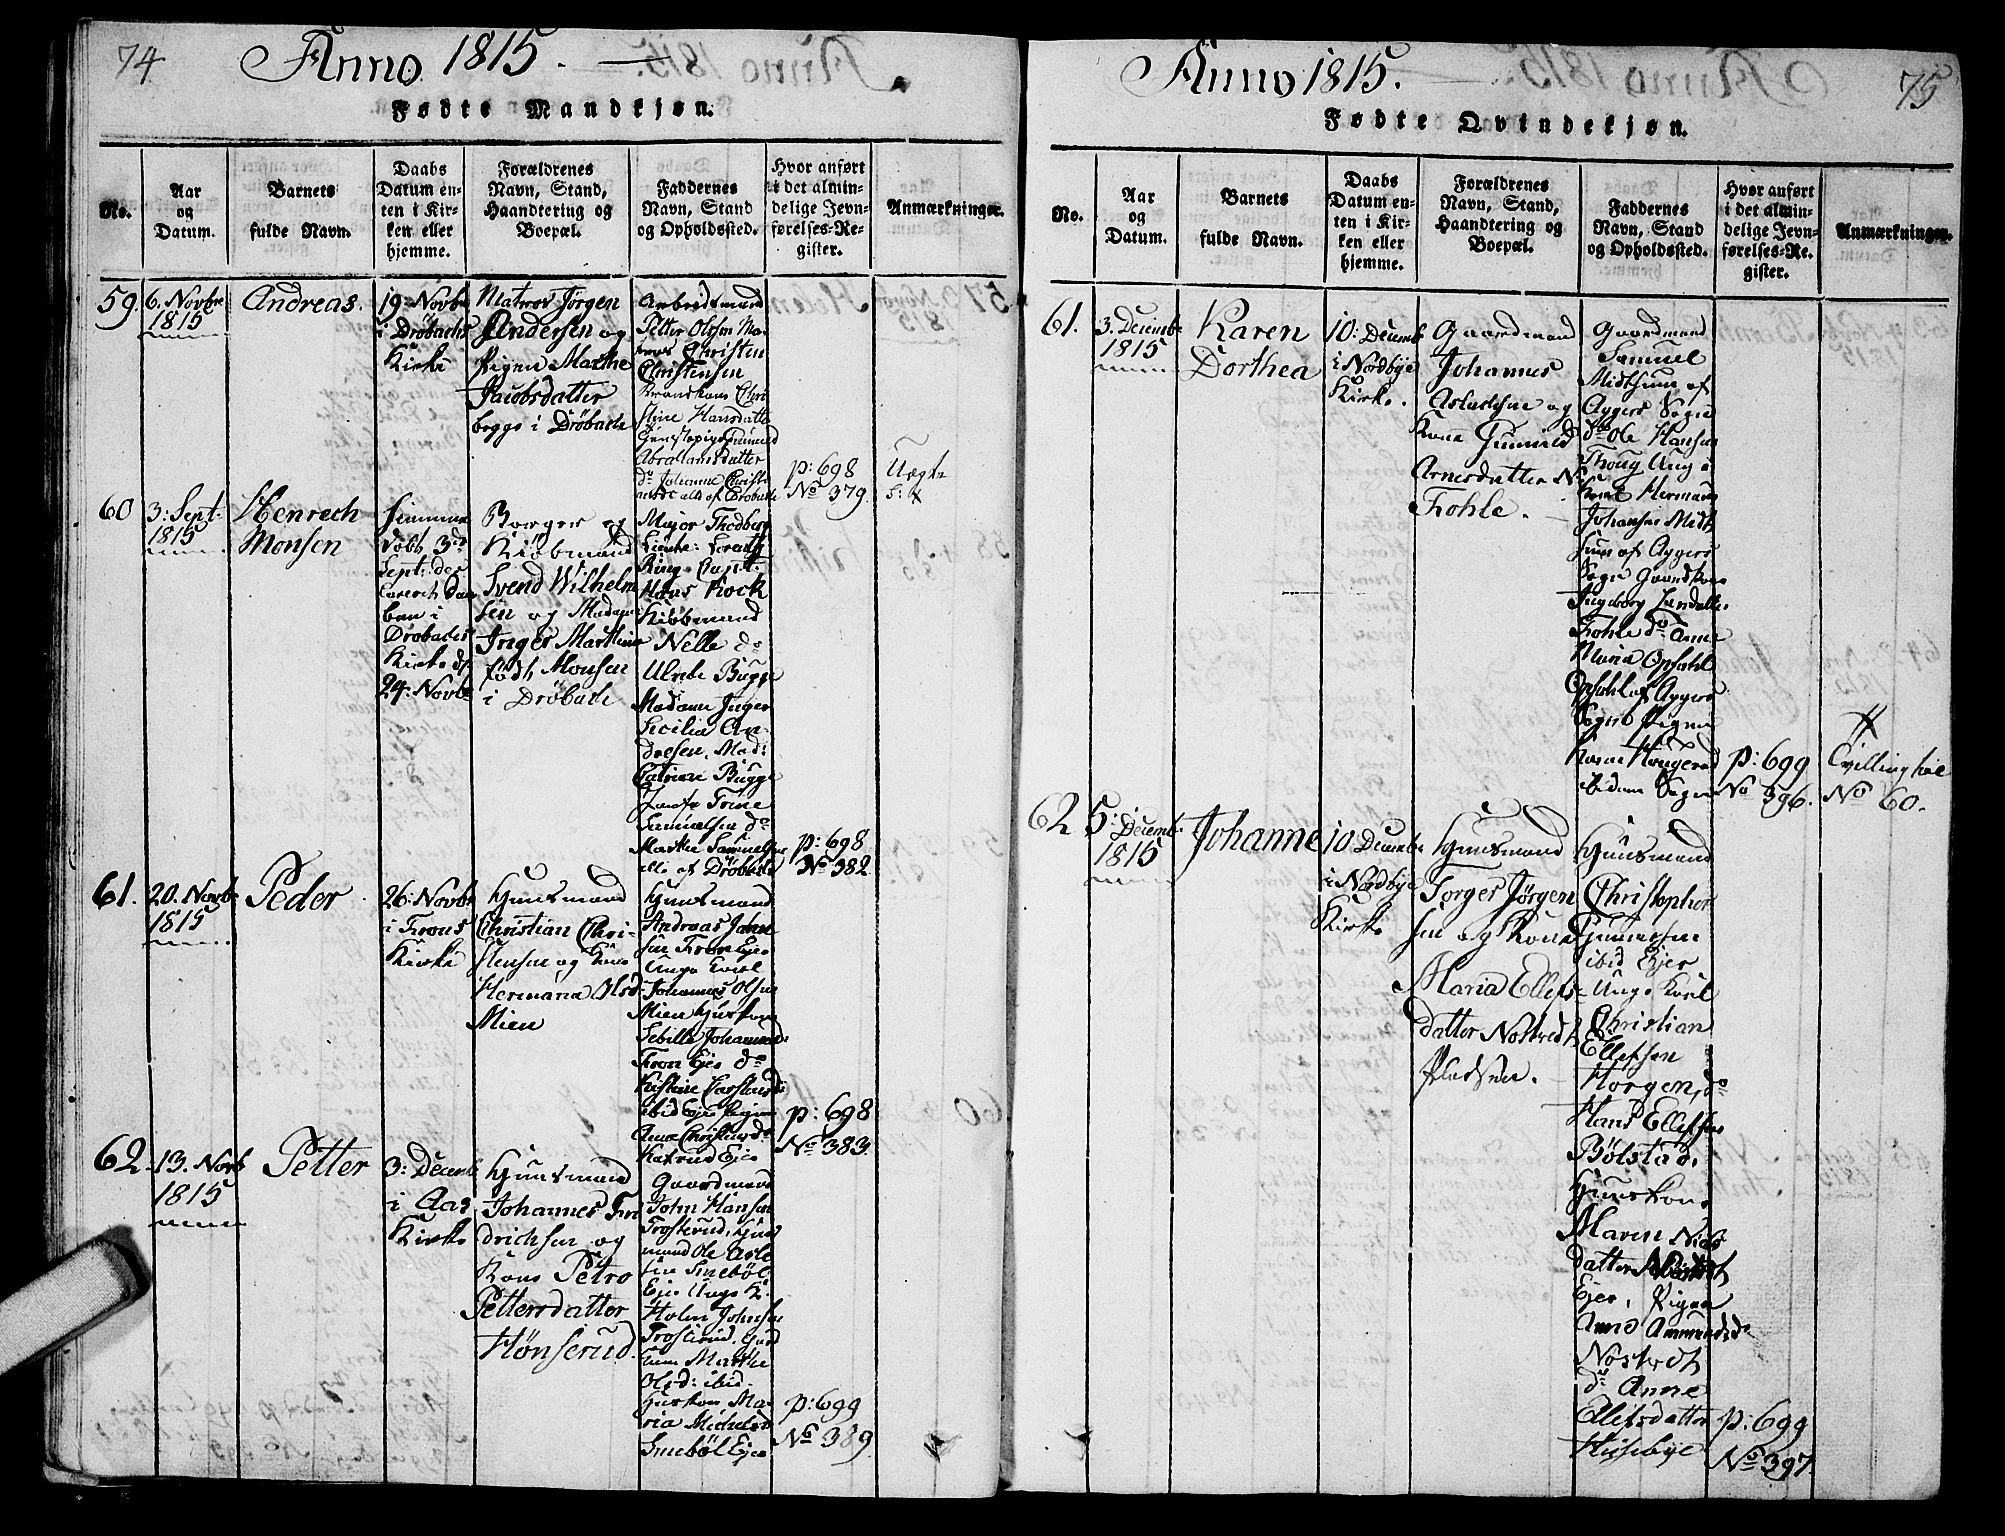 74
Anno 1815.
Fødte Mandkjøn.
No.
Aar
og
Datum.
Barnets
fulde Navn.
Daabs
Datum en-
ten i Kir-
ken eller
hjemme.
Forældrenes
Navn, Stand,
Haandtering og
Boepæl.
Faddernes
Navn, Stand
og Opholdssted.
Hvor anført
i det almin-
delige Jevn-
førelses-Re-
gister.
Anmærkninger.
59.
6. Novbr
1815
Andreas.
19. Novbr
i Drøbachs
Kirke
Matros Jørgen
Andersen og
Pigen Marthe
Jacobsdatter
begge i Drøbach
Arbeidsmand
Petter Olssen Ma-
tros Christen
Christensen
Christine Hansdatter
Abrahamsdatter
do Johanne Christi
alle af Drøbach
p: 698
No 379.
Uægte
60
3: Sept.
1815
Henrech
Monsen
hjemme
døbt 3de
Sept: des
Daa
ben i
Drøbachs
Kirke d.
24: Novbr
Borger og
Kiøbmand
Svend Wilhelm
sen og Madame
Inger Marthine
født Monsen
i Drøbach
Major Thodberg
Ring. Capt.
Hans Kock
Kiøbmand
Nelle do
Ulrik Bugge
Madame Inger
Sicilia An-
dresen, Mad:
Catrine Bugge
Jomfr Trine
Samuelsen do
Marthe Samuelsen
alle af Drøbach
p: 698
No 382.
61.
20. Novbr
1815
Peder
26: Novbr
i Frons
Kirke
Huusmand
Christian Chri-
stensen og Kone
Hermana Olsd.
Mien
Huusmand
Andreas Johan
sen Fron Eje
Unge Karl
Johannes Olsen
Mien Huuskone
Sebille Johannesd
Fron Eje do
ibid Eje Pigen
Anne Christensd
Eje
p: 698
No 383.
62.
13. Novb
1815
Petter
3: Decemb
i Aas
Kirke
Huusmand
Johannes Fri
drichsen og
Kone Petro
Pettersdatter
Hønserud.
Gaardmand
John Hansen
Frosterud, Huus
mand Ole Asle
sen Smebøl
Eje Unge K.
Holm Johnsen
Frosterud, Gaard
kone Marthe
Olsd: ibid.
Huuskon Ma
ria Michelsd
Smebøl Eje
p: 699
No 389.
75
Anno 1815.
Fødte Qvindekjøn.
No.
Aar
og
Datum.
Barnets
fulde Navn.
Daabs
Datum en-
ten i Kir-
ken eller
hjemme.
Forældrenes
Navn, Stand,
Haandtering og
Boepæl.
Faddernes
Navn, Stand
og Opholdssted.
Hvor anført
i det almin-
delige Jevn-
førelses-Re-
gister.
Anmærkninger.
61.
3. Decemb.
1815
Karen
Dorthea
10: Decemb
i Nordbye
Kirke.
Gaardmand
Johannes
Aslaksen og
Kone Gunild
Arnesdatter N.
Frohle.
Gaardmand
Samuel
Midtsum af
Aggers Sogn
do Ole Hansen
Thoug Ung
Karl Herman
Johansen Midt
sum af Aggers
Sogn Gaardkone
Ingeborg
Frohle do Anne
Maria Opsahl
Opsahl af Aggers
Sogn Pigen
Karen Haugerud
ibidem Sogn
p: 699
No 396.
Tvilling til
No 60.
62
5: Decemb.
1815
Johanne
10 Decemb
i Nordbye
Kirke
Huusmand
Torger Jørgen
sen og Kone
Maria Ellefs-
datter Nøstvedt
Pladsen.
Huusmand
Christopher
Gunnersen
ibid Ejer
Unge Karl
Christian
Ellefsen
Horgen, do
Hans Ellefsen
Bølstad,
Huuskone
Maren Niels
datter Nøstvedt
Ejer, Pigen
Anne Ammundsd.
Nøstvedt
do Anne
Ellefsdatter
Huseby
p: 699
No 397.